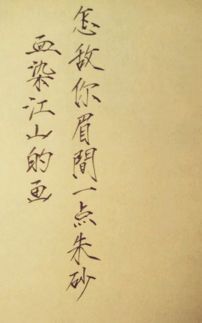 血染江山的画
怎敌你眉間一点朱砂